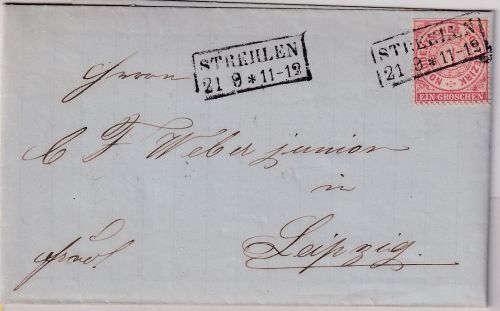 STREHLEN
21 9 * 11-12
STREHLEN
21 9 * 11-12
EIN GROSCHEN
Herrn
C F Weber junior
in
Leipzig.